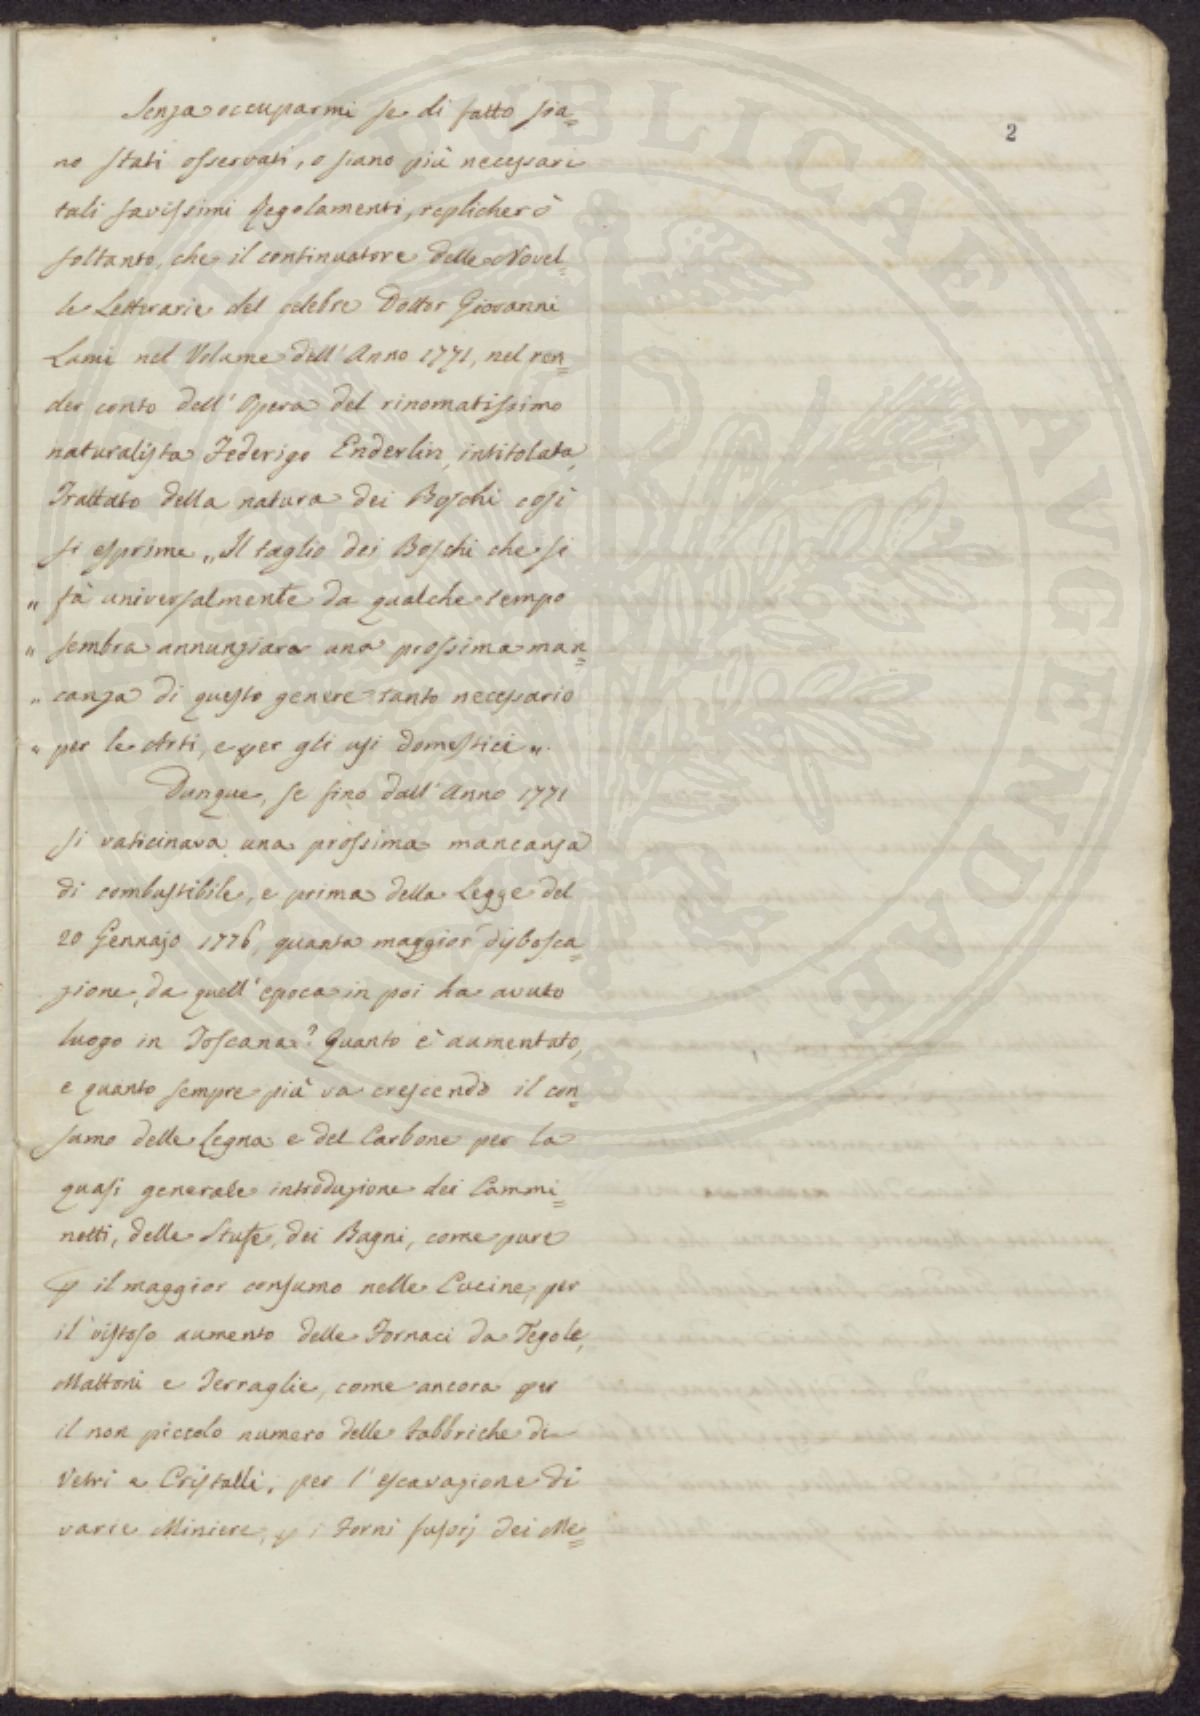 2
Senza occuparmi se di fatto sia=
no stati osservati, o siano più necessari
tali savissimi Regolamenti, replicherò
soltanto, che il continuatore delle Novel=
le Letterarie del celebre Dottor Giovanni
Lami nel Volume dell'Anno 1771, nel ren=
der conto dell'Opera del rinomatissimo
naturalista Federigo Enderlin, intitolata,
Trattato della natura dei Boschi così
si esprime „ Il taglio dei Boschi che si
„ fà universalmente da qualche tempo
„ sembra annunziare una prossima man=
„ canza di questo genere tanto necessario
„ per le Arti, e per gli usi domestici „.
Dunque, se fino dall'Anno 1771
si vaticinava una prossima mancanza
di combustibile, e prima della Legge del
20 Gennajo 1776, quanta maggior disbosca=
zione, da quell'epoca in poi ha avuto
luogo in Toscana? Quanto è aumentato,
e quanto sempre più va crescendo il con=
sumo delle Legna e del Carbone per la
quasi generale introduzione dei Cammi=
netti, delle Stufe, dei Bagni, come pure
p il maggior consumo nelle Cucine, per
il vistoso aumento delle Fornaci da Tegole,
Mattoni e Terraglie, come ancora per
il non piccolo numero delle Fabbriche di
Vetri e Cristalli, per l'escavazione di
varie Miniere, p i Forni fusorj dei Me=
PUBLICAE AVGENDAE